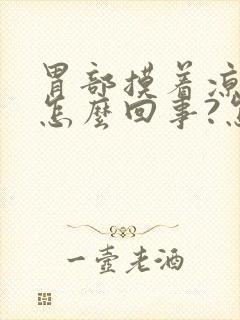 胃部摸着凉
怎麼回事?怎
一壺老酒